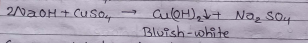 2NaOH + CuSO₄ → Cu(OH)₂↓ + Na₂SO₄
Bluish-white